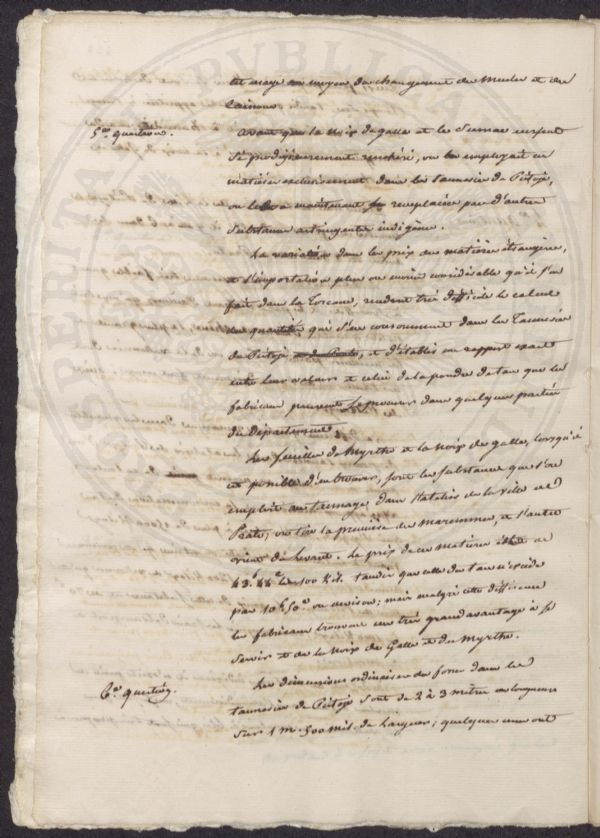 cet usage au moyen du changement des Meules et des
Caissons.
5.me question.
Avant que la noix de galle et le Sumac eussent
si prodigieusement renchéri, on les employait en
matière exclusivement dans les tanneries de Pistoja,
on les a maintenant remplacées par d'autres
Substances astringentes indigènes.
La variation dans les prix des matières étrangères,
et l'importation plus ou moins considérable qu'il s'en
fait dans la Toscane, rendent très difficile le calcul
des quantités qui s'en consomment dans les Tanneries
de Pistoja et de Prato, et d'établir un rapport exact
entre leur valeur et celle de la poudre de tan que les
fabricans peuvent se procurer dans quelques parties
du Département.
Les feuilles de Myrthe et la Noix de galle, lorsqu'il
est possible d'en trouver, sont les substances que l'on
emploie au tannage dans l'atelier de la ville de
Prato; on tire la première des maremmes, et l'autre
vient du Levant. Le prix de ces matières est de
les 100 Kil. tandis que celle du tan n'excède
pas 10 50 ou environ; mais malgré cette différence
les fabricans trouvent un très grand avantage à se
Servir de la Noix de Galle et du Myrthe.
6.e question.
Les dimensions ordinaires des fosses dans les
tanneries de Pistoja sont de 2 à 3 mètres en longueur
sur 1 m. 500 mil. de largeur; quelques unes ont